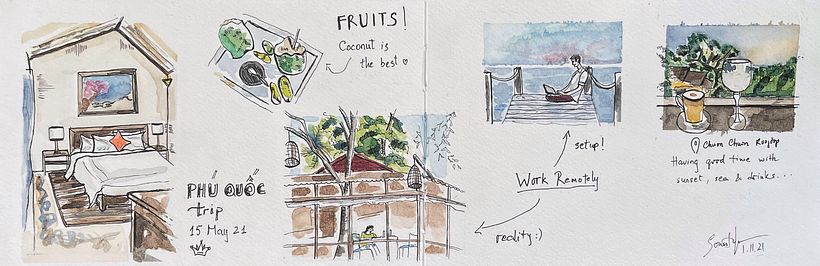 FRUITS!
Coconut is
the best
PHÚ QUỐC
trip
15 May 21
setup!
Work Remotely
reality :)
Chuon Chuon Rooftop
Having good time with
sunset, sea & drinks...
1.11.21